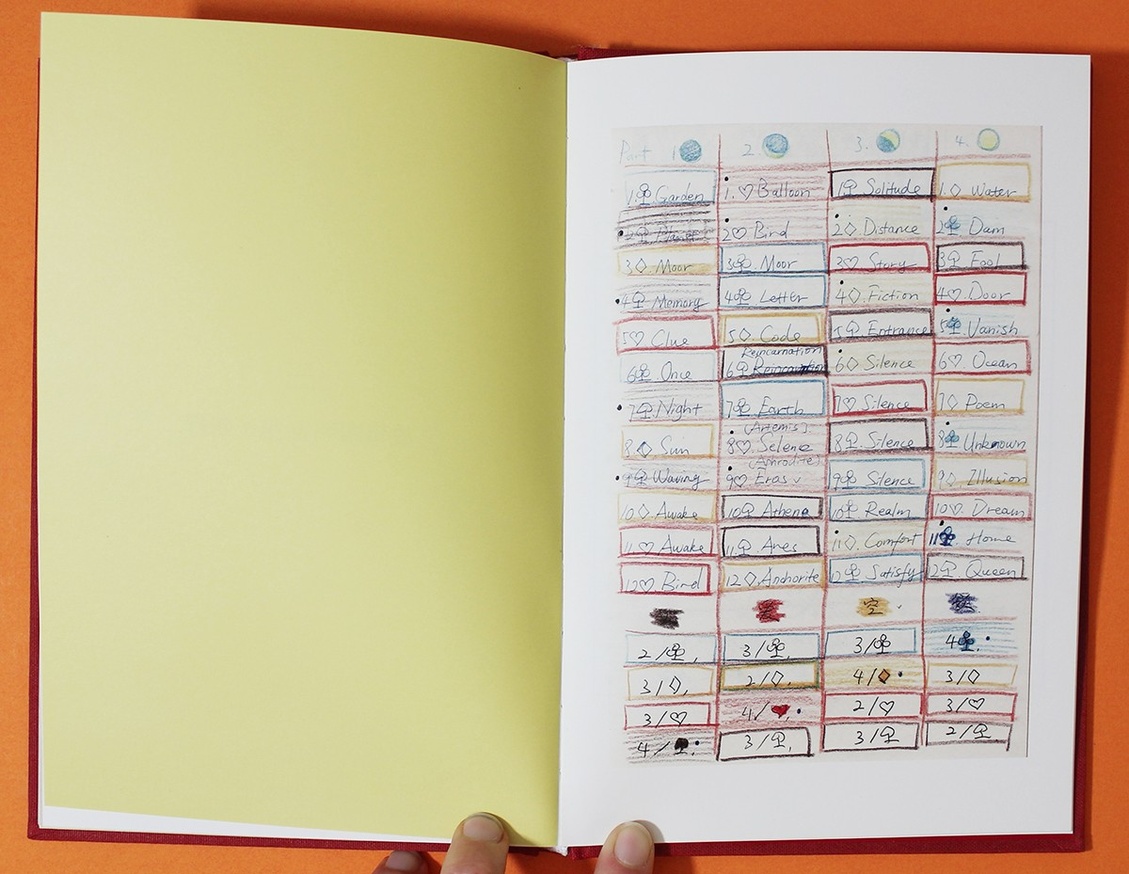 Part 1 2. 3. 4.
1.♧ Garden 1.♡ Balloon 1♤ Solitude 1.◇ Water
2♤ 2♡ Bird 2◇ Distance 2♧ Dam
3◇ Moor 3♧ Moor 3♡ Story 3♤ Fool
4♤ Memory 4♧ Letter 4◇ Fiction 4♡ Door
5♡ Clue 5◇ Code 5♤ Entrance 5♧ Vanish
Reincarnation
6♧ Once 6♤ Reincarnation 6◇ Silence 6♡ Ocean
7♤ Night 7♧ Earth 7♡ Silence 7◇ Poem
(Artemis)
8◇ Sun 8♡ Selene 8♤ Silence 8♧ Unknown
(Aphrodite)
9♤ Waving 9♡ Eros 9♧ Silence 9◇ Illusion
10◇ Awake 10♤ Athena 10♧ Realm 10♡ Dream
11♡ Awake 11♤ Ares 11◇ Comfort 11♧ Home
12♡ Bird 12◇ Anchorite 12♧ Satisfy 12♤ Queen
空
2/♧, 3/♧, 3/♧ 4♧.
3/◇, 2/◇, 4/◇ 3/◇
3/♡ 4/♥, 2/♡ 3/♡
4/♠. 3/♤, 3/♤ 2/♤.